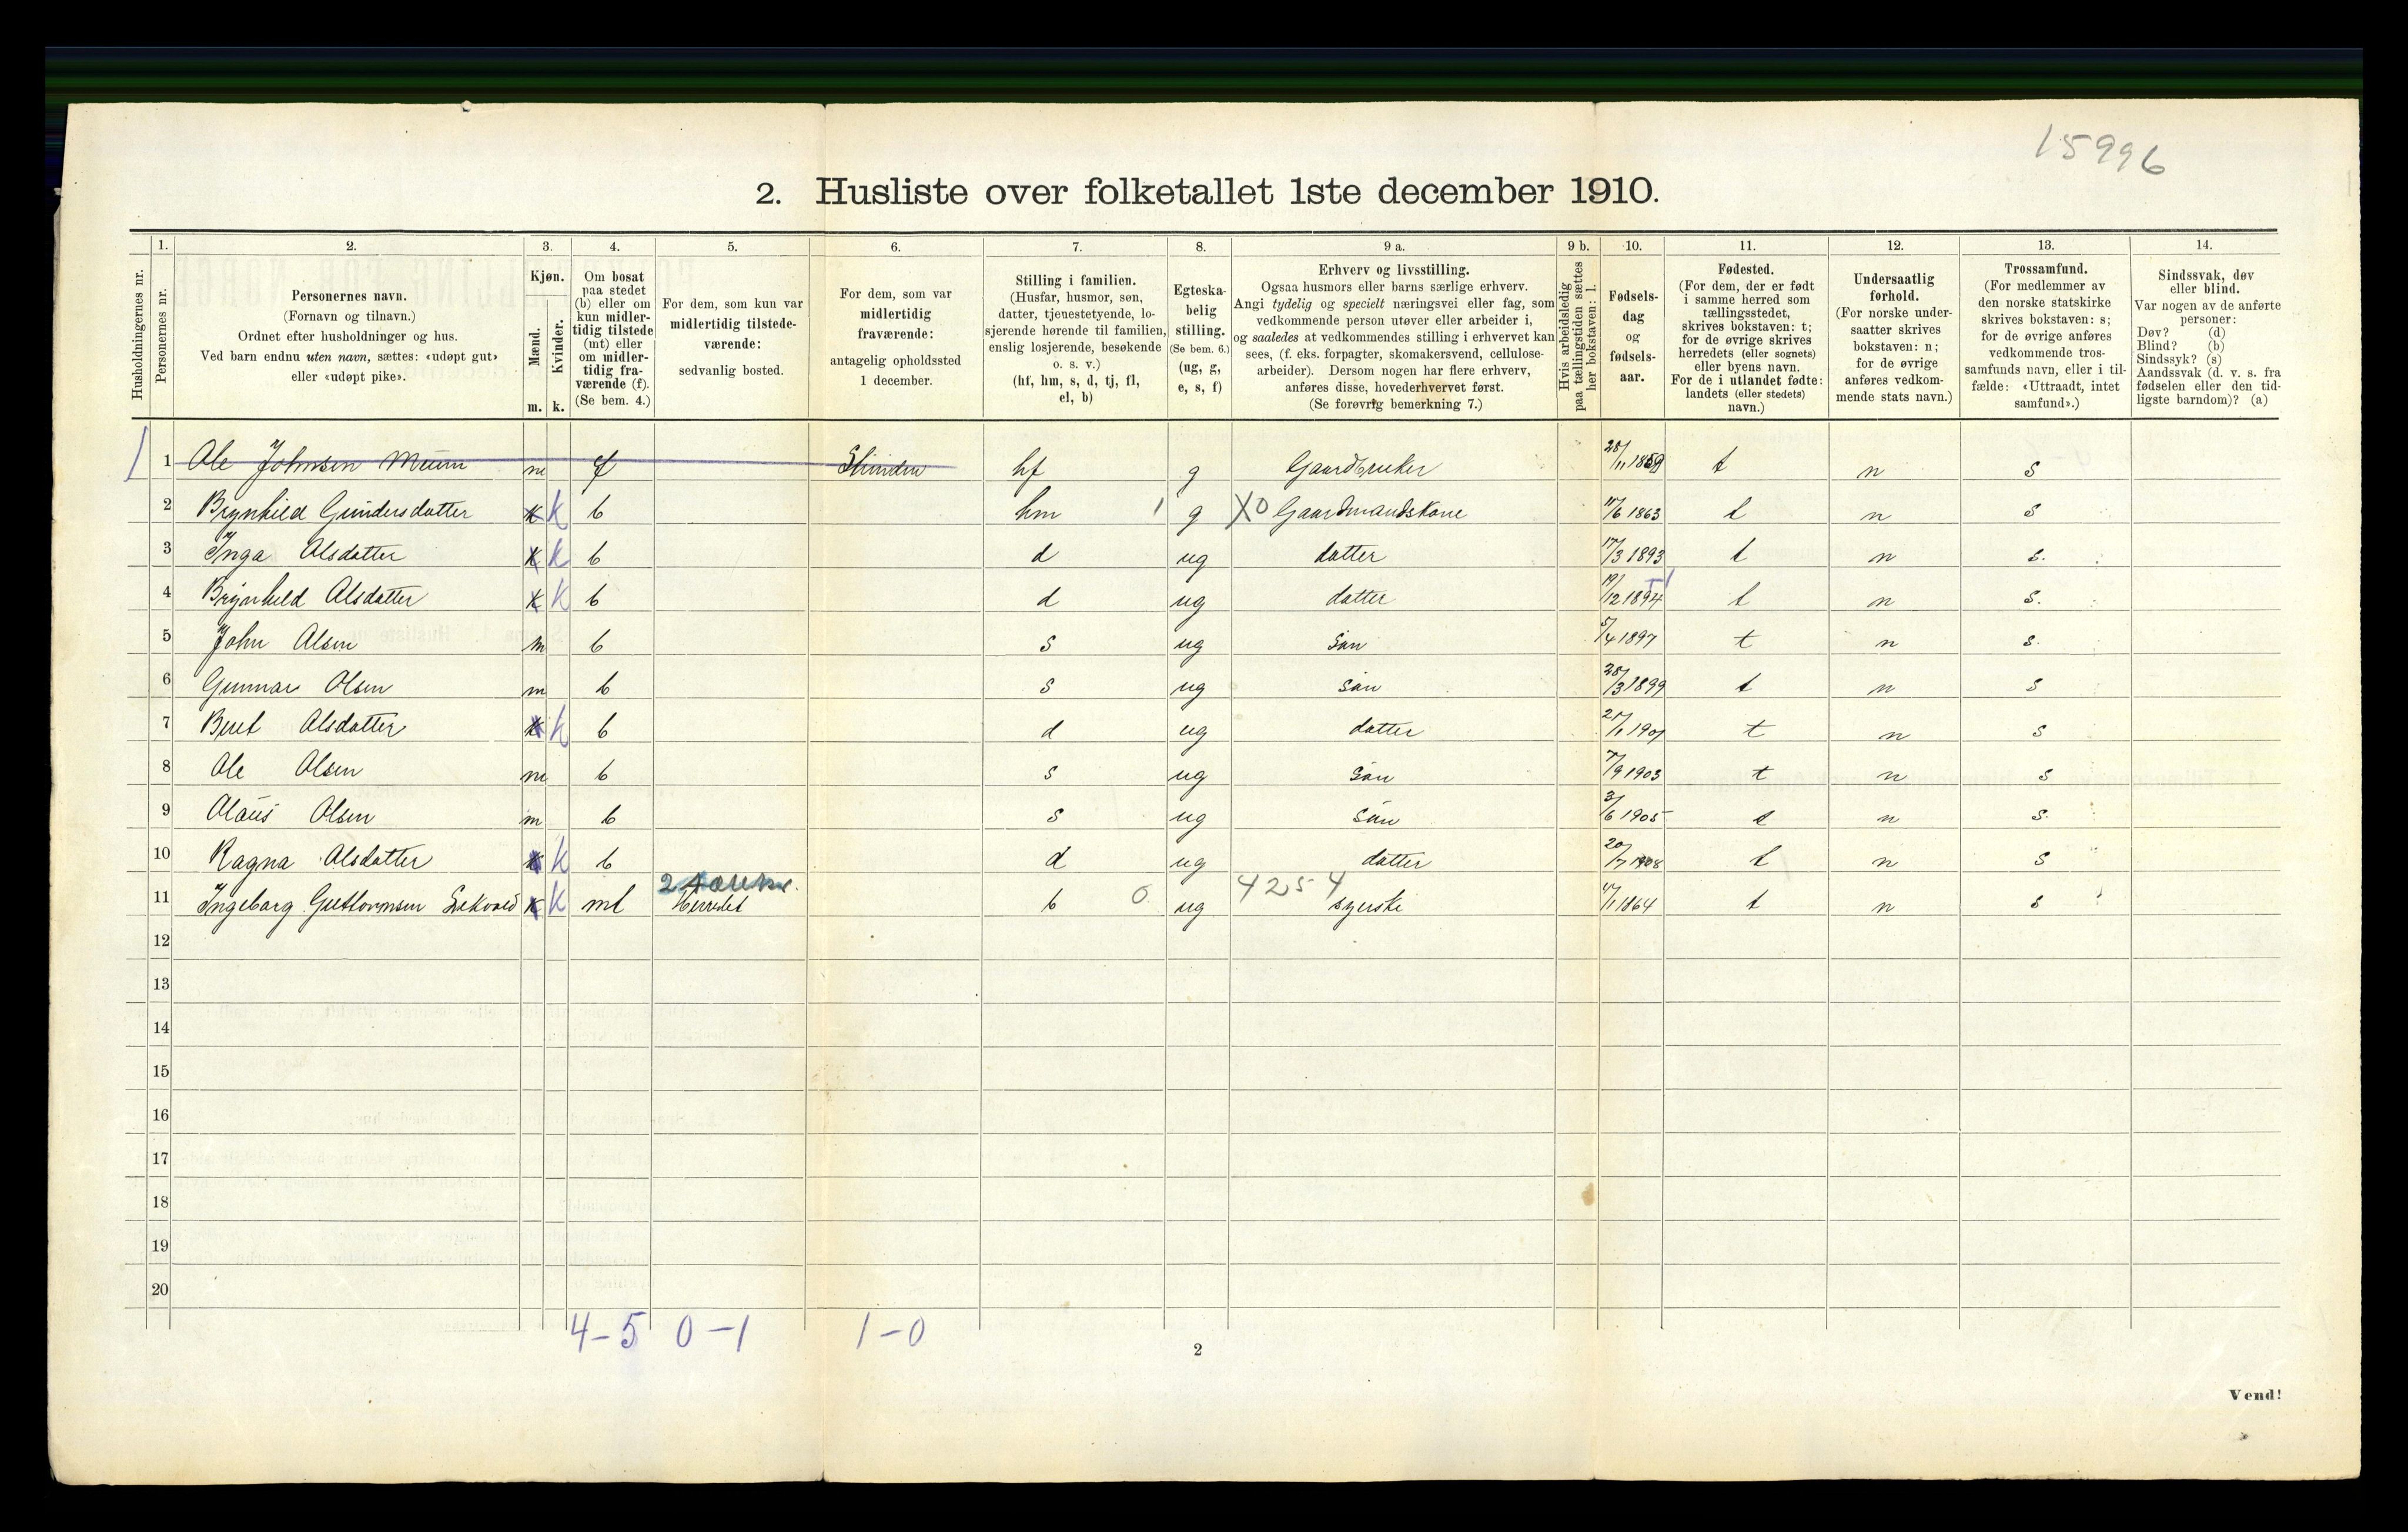 15996
2. Husliste over folketallet 1ste december 1910.
Husholdningernes nr.
1.
Personernes nr.
2.
Personernes navn.
(Fornavn og tilnavn.)
Ordnet efter husholdninger og hus.
Ved barn endnu uten navn, sættes: «udøpt gut»
eller «udøpt pike».
3.
Kjøn.
Mænd.
Kvinder.
m. k.
4.
Om bosat
paa stedet
(b) eller om
kun midler-
tidig tilstede
(mt) eller
om midler-
tidig fra-
værende (f).
(Se bem. 4.)
5.
For dem, som kun var
midlertidig tilstede-
værende:
sedvanlig bosted.
6.
For dem, som var
midlertidig
fraværende:
antagelig opholdssted
1 december.
7.
Stilling i familien.
(Husfar, husmor, søn,
datter, tjenestetyende, lo-
sjerende hørende til familien,
enslig losjerende, besøkende
o. s. v.)
(hf, hm, s, d, tj, fl,
el, b)
8.
Egteska-
belig
stilling.
(Se bem. 6.)
(ug, g,
e, s, f)
9 a.
Erhverv og livsstilling.
Ogsaa husmors eller barns særlige erhverv.
Angi tydelig og specielt næringsvei eller fag, som
vedkommende person utøver eller arbeider i,
og saaledes at vedkommendes stilling i erhvervet kan
sees, (f. eks. forpagter, skomakersvend, cellulose-
arbeider). Dersom nogen har flere erhverv,
anføres disse, hovederhvervet først.
(Se forøvrig bemerkning 7.)
9 b.
Hvis arbeidsledig
paa tællingstiden sættes
her bokstaven: l.
10.
Fødsels-
dag
og
fødsels-
aar.
11.
Fødested.
(For dem, der er født
i samme herred som
tællingsstedet,
skrives bokstaven: t;
for de øvrige skrives
herredets (eller sognets)
eller byens navn.
For de i utlandet fødte:
landets (eller stedets)
navn.)
12.
Undersaatlig
forhold.
(For norske under-
saatter skrives
bokstaven: n;
for de øvrige
anføres vedkom-
mende stats navn.)
13.
Trossamfund.
(For medlemmer av
den norske statskirke
skrives bokstaven: s;
for de øvrige anføres
vedkommende tros-
samfunds navn, eller i til-
fælde: «Uttraadt, intet
samfund».)
14.
Sindssvak, døv
eller blind.
Var nogen av de anførte
personer:
Døv? (d)
Blind? (b)
Sindssyk? (s)
Aandssvak (d. v. s. fra
fødselen eller den tid-
ligste barndom)? (a)
1 1 Ole Johnsen m f hf g Gaardbruker 28/11 1859 t n s
2 Brynhild Gundersdatter k k b hm 1 g X0 Gaardmandskone 15/6 1863 t n s
3 Inga Olsdatter k k b d ug datter 17/3 1893 t n s.
4 Brynhild Olsdatter k k b d ug datter 19/12 1894 t n s.
5 John Olsen m b s ug søn 5/4 1897 t n s.
6 Gunnar Olsen m b s ug søn 28/3 1899 t n s
7 Berit Olsdatter k k b d ug datter 21/11 1901 t n s
8 Ole Olsen m b s ug søn 7/9 1903 t n s
9 Olaus Olsen m b s ug søn 3/6 1905 t n s
10 Ragna Olsdatter k k b d ug datter 20/7 1908 t n s
11 Ingeborg Guttormsen k k mt Herredet b 0 ug 4254 syerske 4/1 1864 t n s
12
13
14
15
16
17
18
19
20
4-5 0-1 1-0
2
Vend!